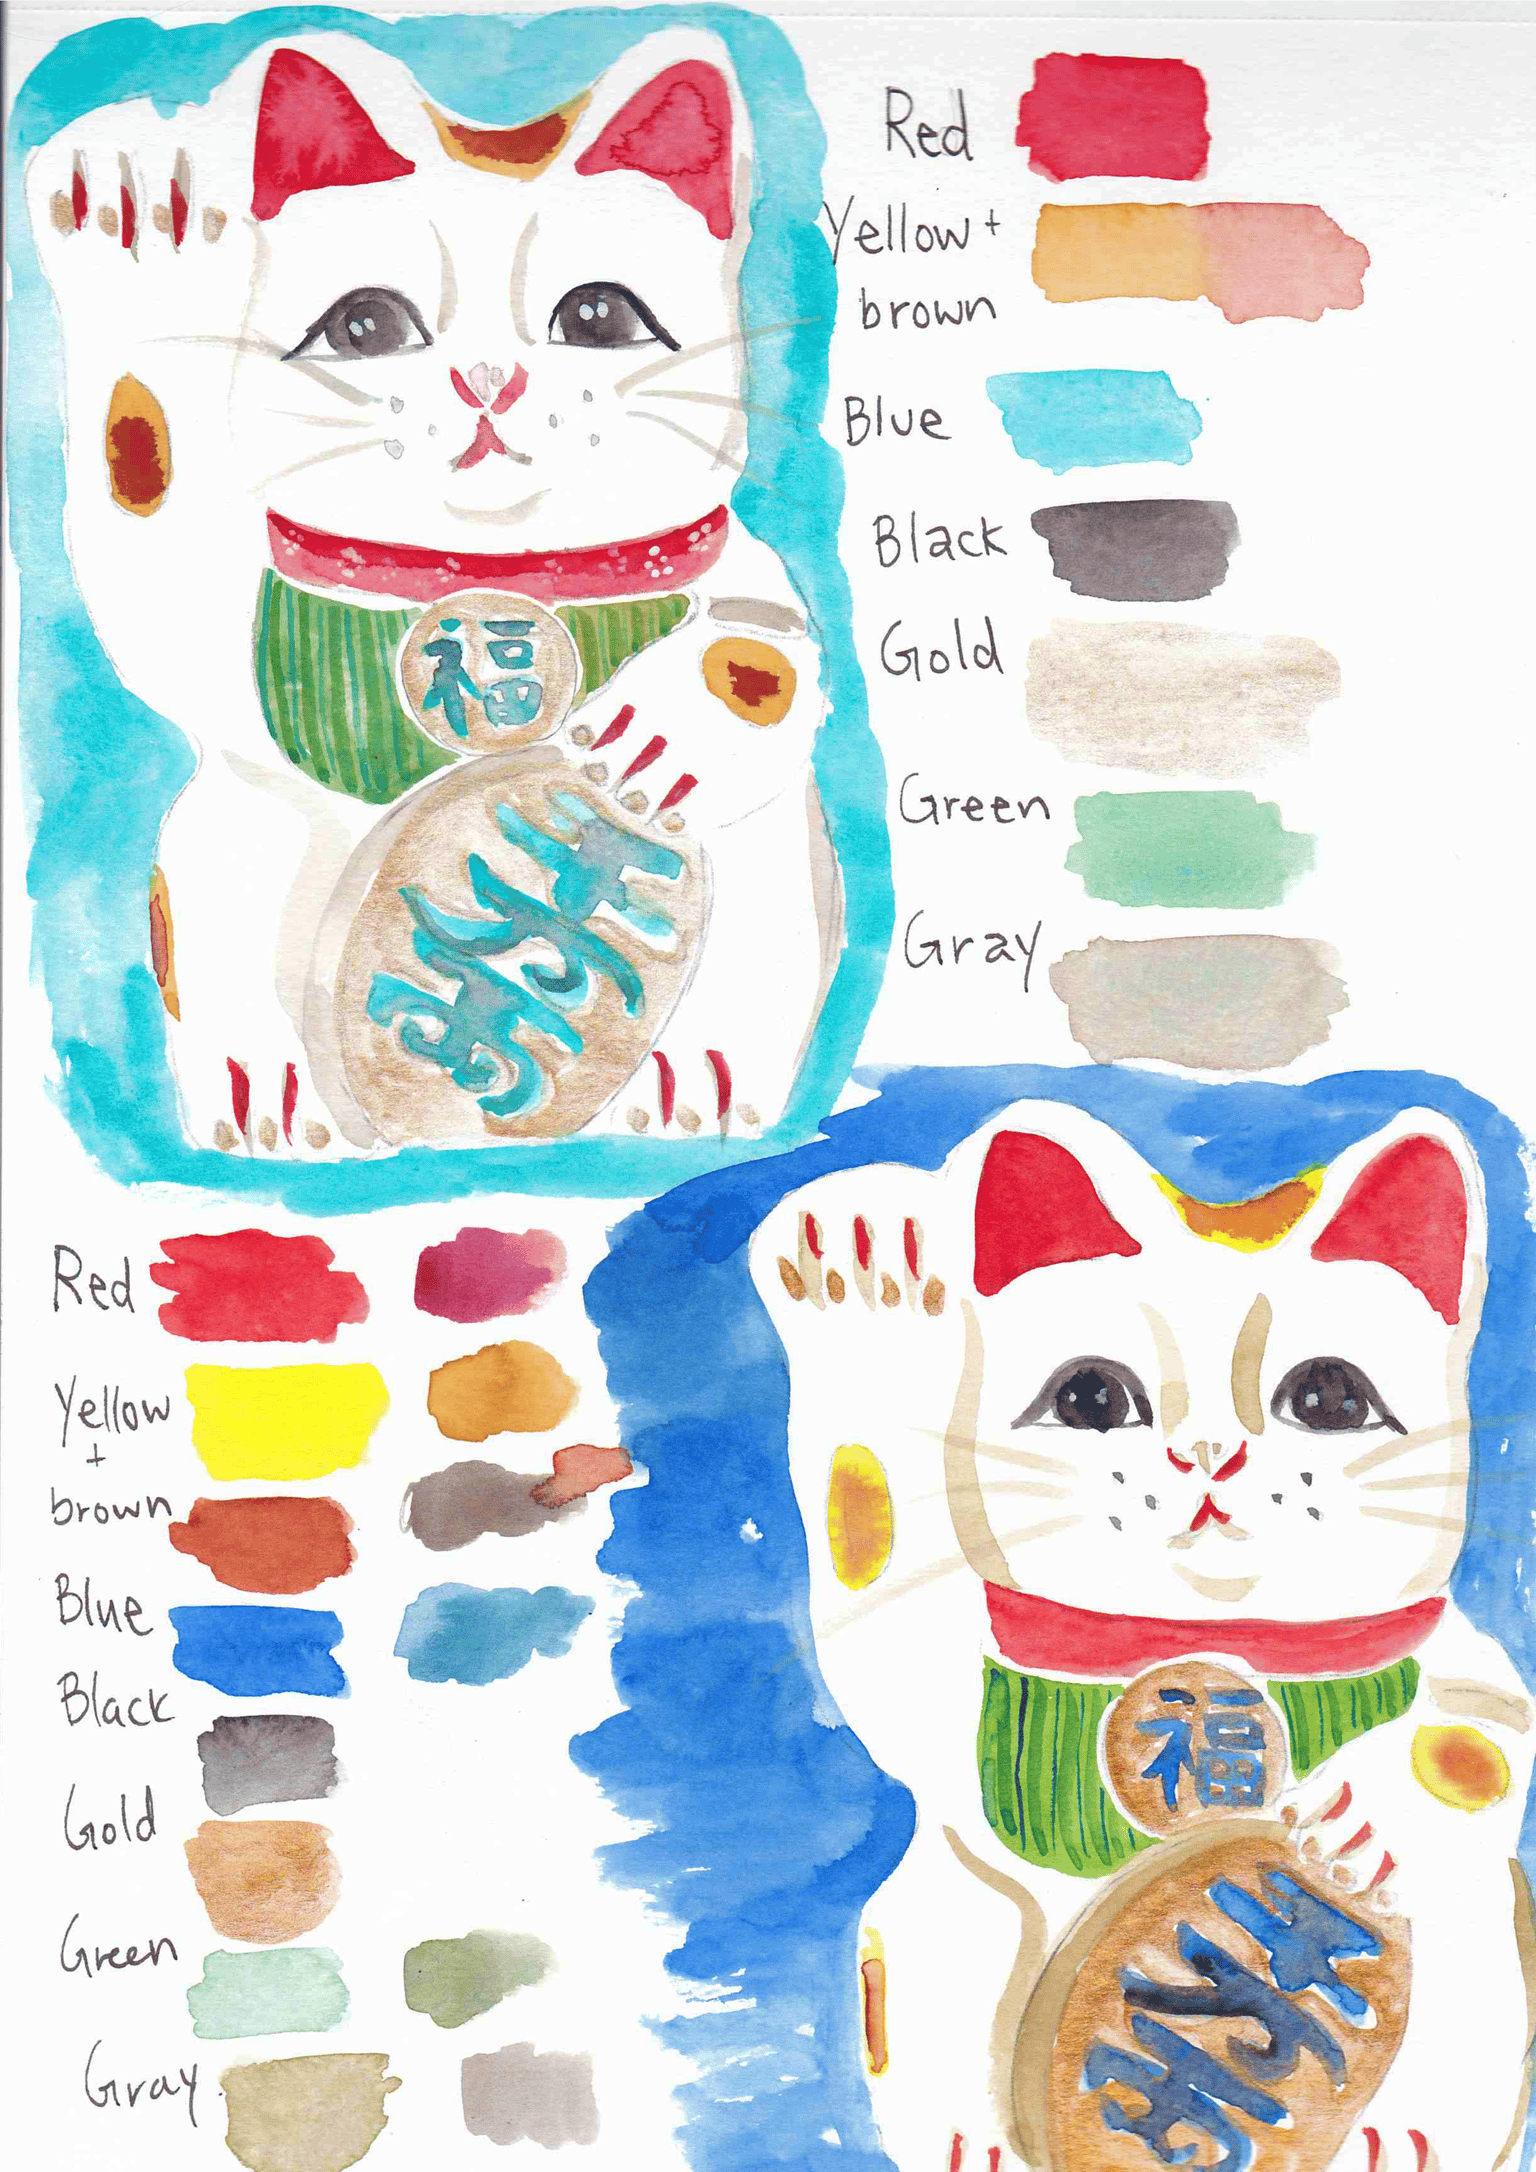 Red
Yellow +
brown
Blue
Black
Gold
Green
Gray
福
Red
Yellow
+
brown
Blue
Black
Gold
Green
Gray
福